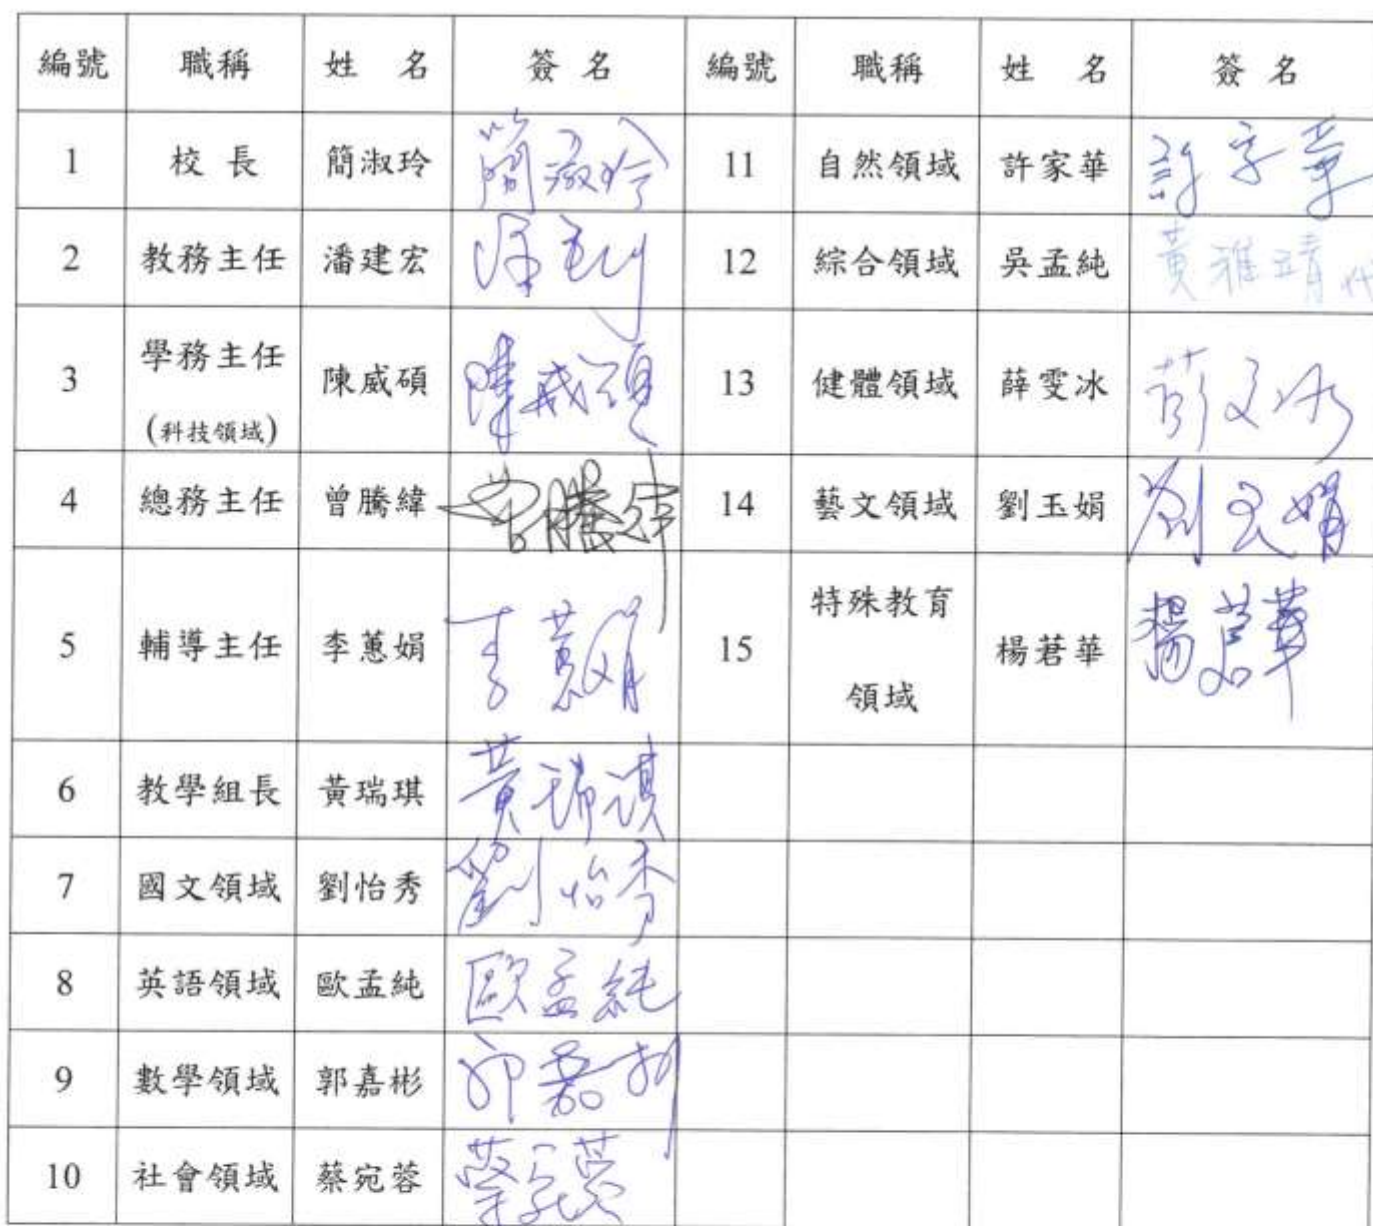 編號 職稱 姓 名 簽 名 編號 職稱 姓 名 簽 名
1 校 長 簡淑玲 簡淑玲 11 自然領域 許家華 許家華
2 教務主任 潘建宏 12 綜合領域 吳孟純 黃雅靖代
3 學務主任 (科技領域) 陳威碩 陳威碩 13 健體領域 薛雯冰 薛雯冰
4 總務主任 曾騰緯 曾騰緯 14 藝文領域 劉玉娟 劉玉娟
5 輔導主任 李蕙娟 李蕙娟 15 特殊教育 領域 楊莙華 楊莙華
6 教學組長 黃瑞琪 黃瑞琪
7 國文領域 劉怡秀 劉怡秀
8 英語領域 歐孟純 歐孟純
9 數學領域 郭嘉彬 郭嘉彬
10 社會領域 蔡宛蓉 蔡宛蓉